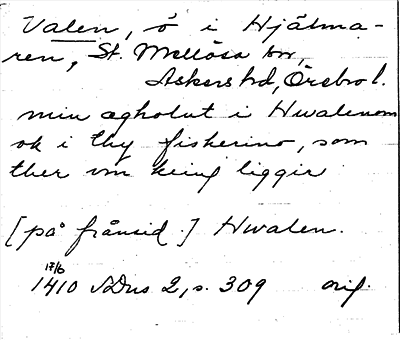 Valen, ö i Hjälma-
ren, St. Mellösa sn,
Askers hd, Örebro l.
min ægholut i Hwalenom
ok i thy fiskerino, som
ther vm king liggir
[på frånsid.] Hwalen.
17/6
1410 SDns 2, s. 309 orig.